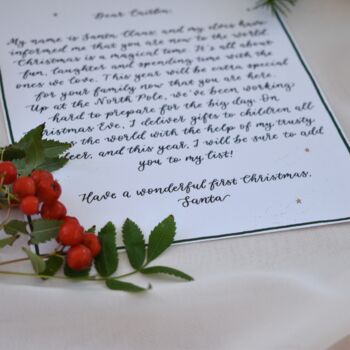 Dear Caitlin,
My name is Santa Claus and my elves have
informed me that you are new to the world.
Christmas is a magical time. It's all about
fun, laughter and spending time with the
ones we love. This year will be extra special
for your family now that you are here.
Up at the North Pole, we've been working
hard to prepare for the big day. On
Christmas Eve, I deliver gifts to children all
the world with the help of my trusty
deer, and this year, I will be sure to add
you to my list!
Have a wonderful first Christmas,
Santa